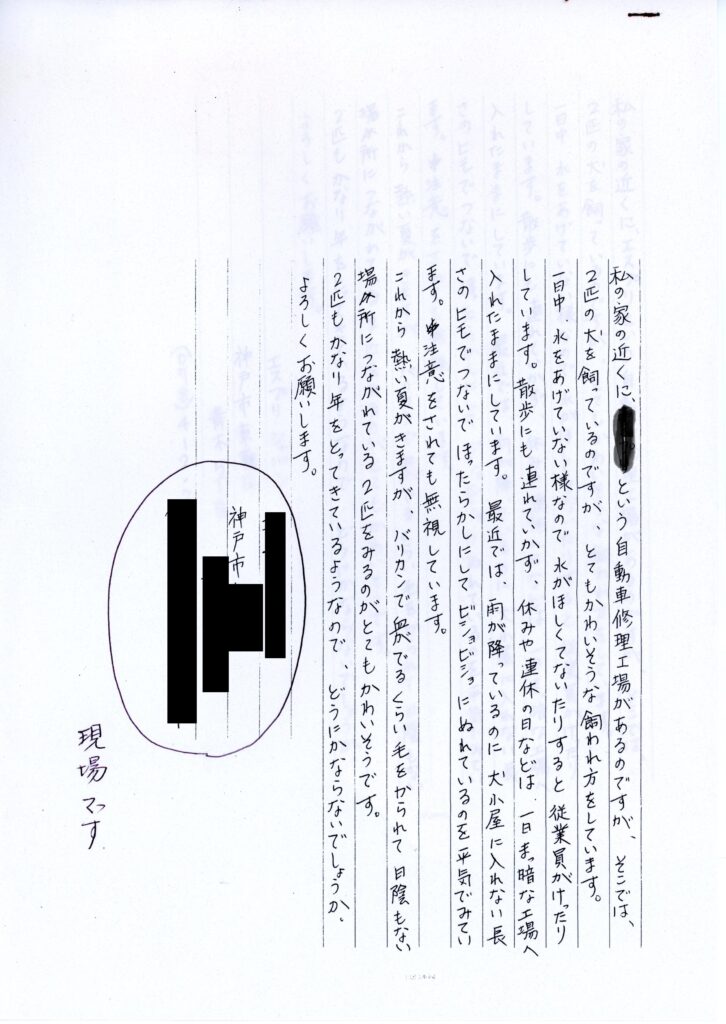 私の家の近くに、という自動車修理工場があるのですが、そこでは、
2匹の犬を飼っているのですが、とてもかわいそうな飼われ方をしています。
一日中、水をあげていない様なので水がほしくてないたりすると従業員がけったり
しています。散歩にも連れていかず、休みや連休の日などは、一日まっ暗な工場へ
入れたままにしています。最近では、雨が降っているのに犬小屋に入れない長
さのヒモでつないでほったらかしにしてビショビショにぬれているのを平気でみてい
ます。注意をされても無視しています。
これから熱い夏がきますが、バリカンで血がでるくらい毛をかられて日陰もない
場所につながれている2匹をみるのがとてもかわいそうです。
2匹もかなり年をとってきているようなので、どうにかならないでしょうか、
よろしくお願いします。
神戸市
現場です